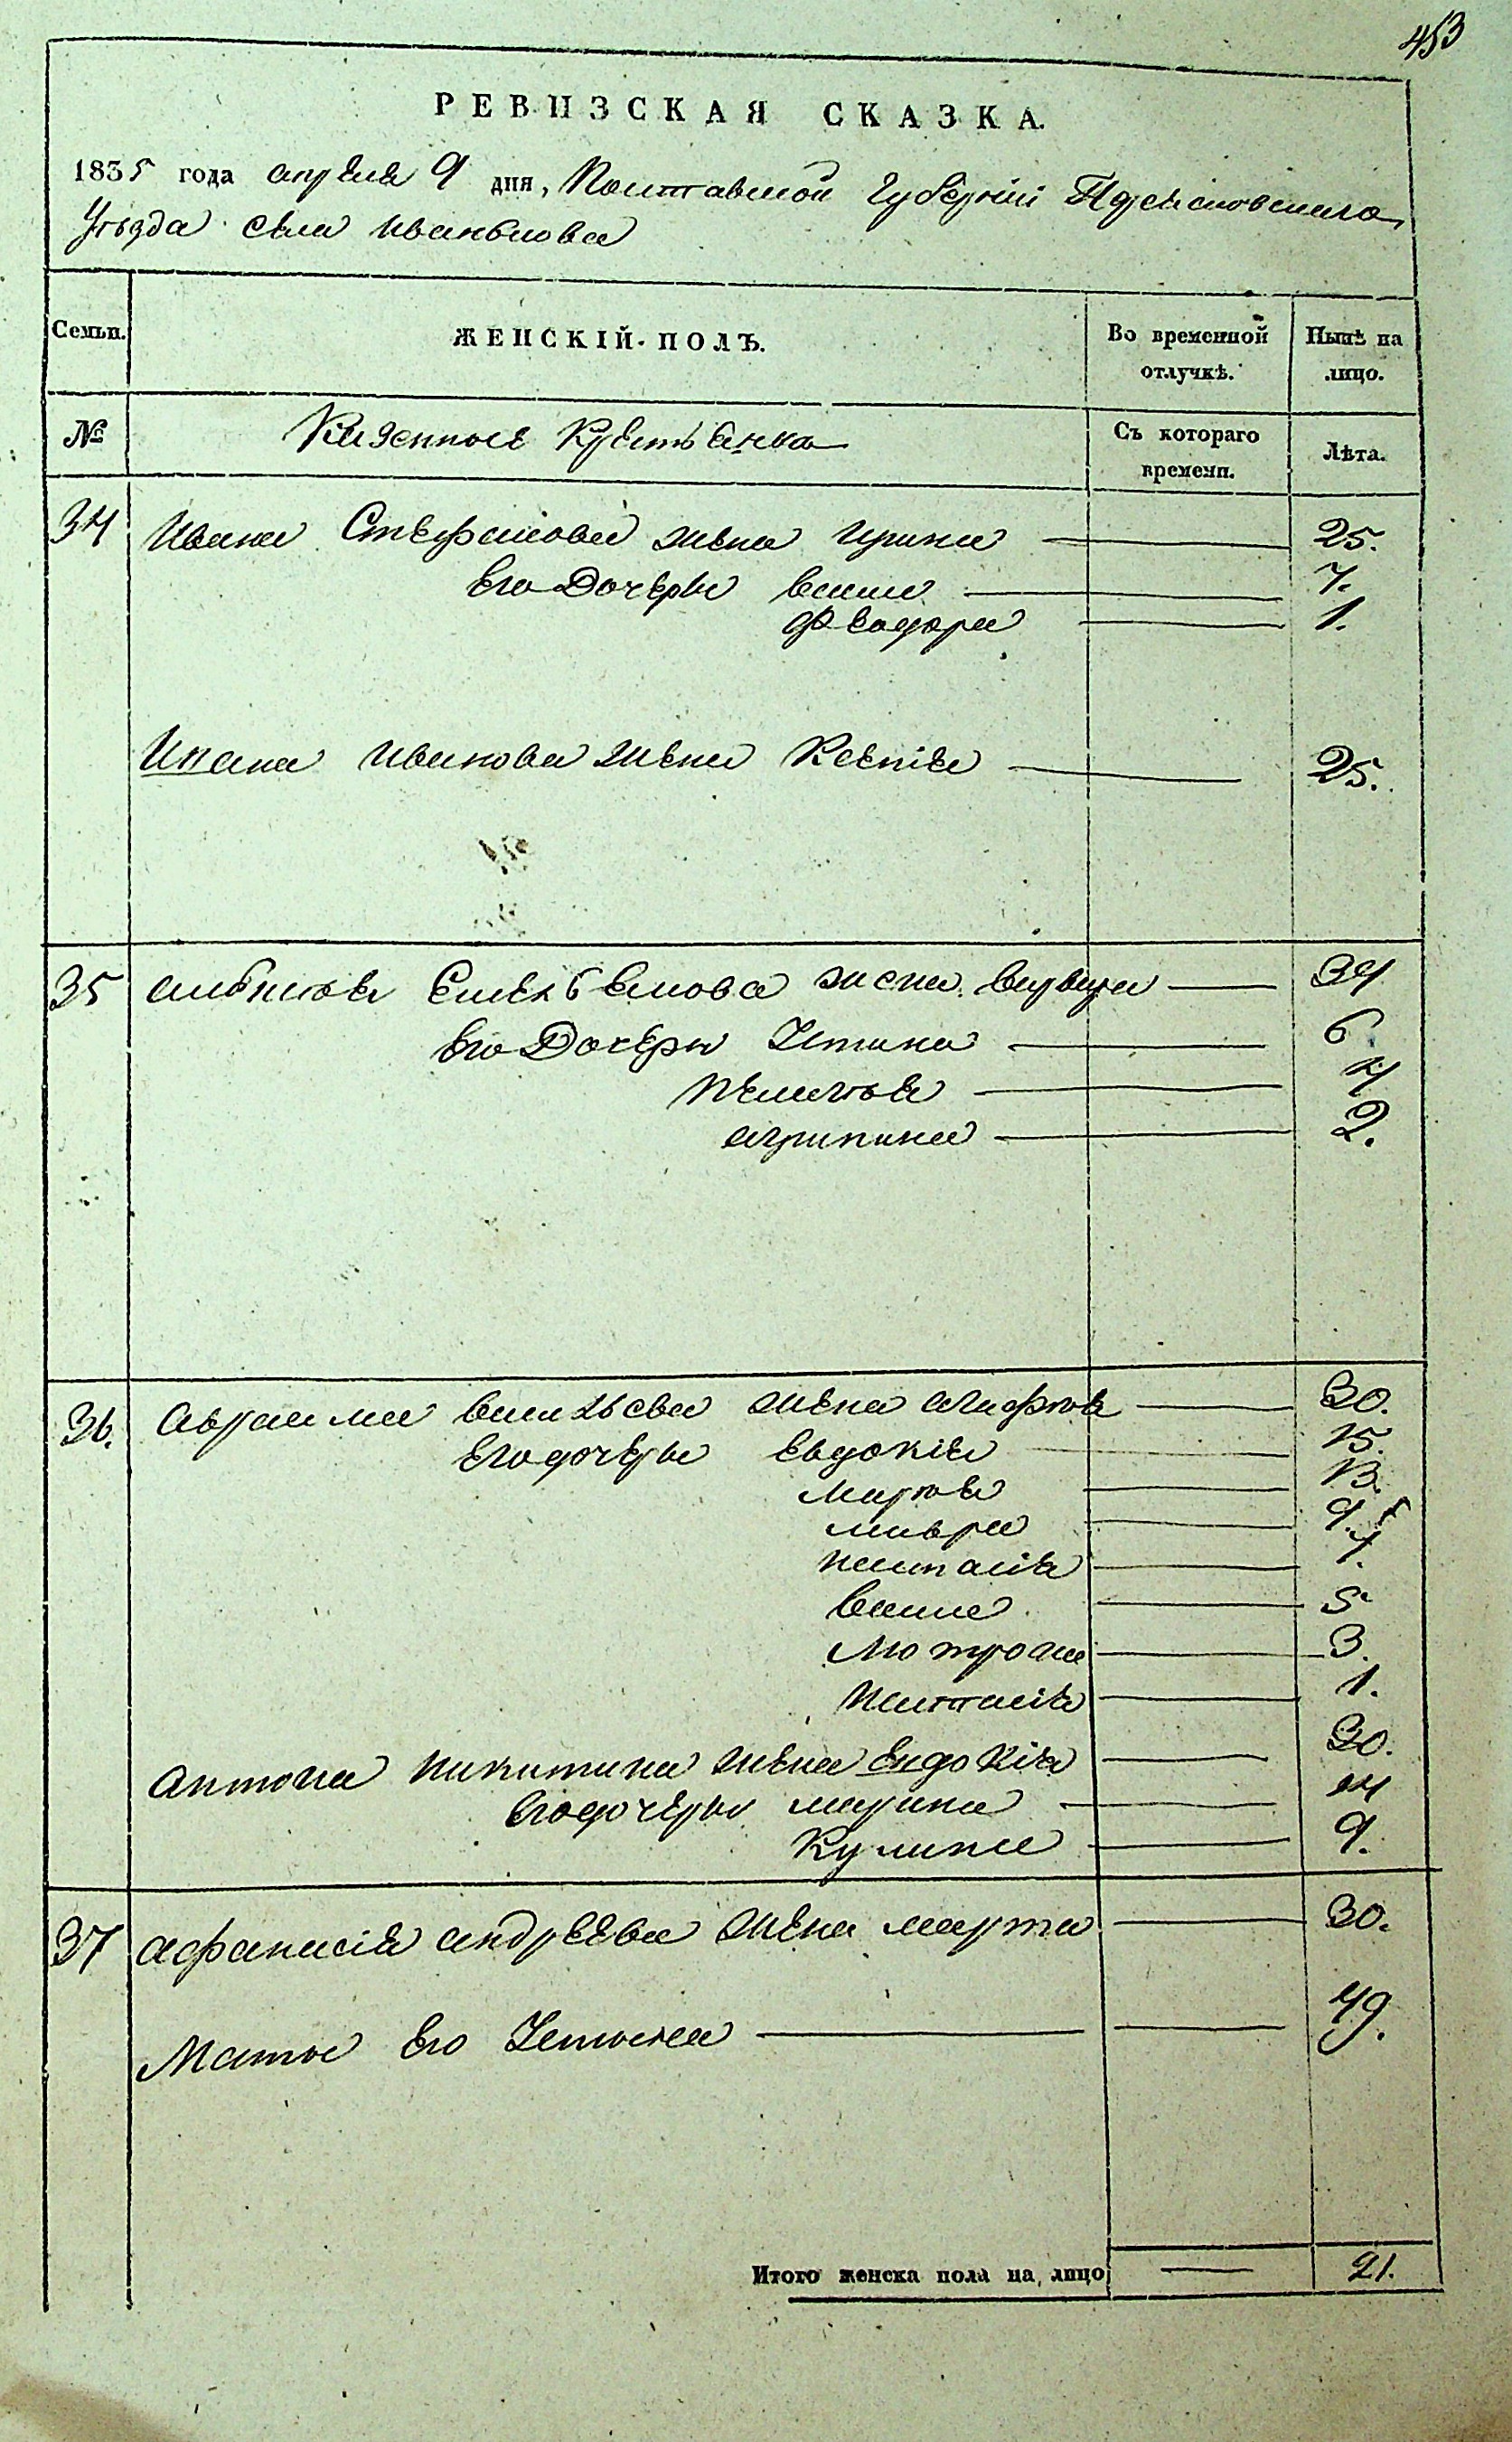 453
РЕВИЗСКАЯ СКАЗКА.
1835 года апреля 9 дня, Полтавской Губернии
Уезда села Иванкова
Семьи. ЖЕНСКІЙ ПОЛЪ. Во временной отлучкѣ. Нынѣ на лицо.
№ Казенные Съ котораго времени. Лѣта.
34 Ивана Стефанова жена Ирина 25.
Его Дочеры Васса 7.
Феодора 1.
Ивана Иванова жена Ксенія 25.
35 жена варвара 34
Его Дочеры Устина 6
Пелагея 4
агрипина 2.
36. Авраама Васильева жена агафія 30.
Его дочеры Евдокія 15.
Марія 13.
мавра 9.
настасія 7.
Васса 5
Мотрона 3.
Настасія 1.
Антона Никитина жена Евдокія 30.
Его дочеры марина 14
Кулина 9.
37 афанасія андреева жена марта 30.
Мать Его Устина 49.
Итого женска пола на лицо 21.